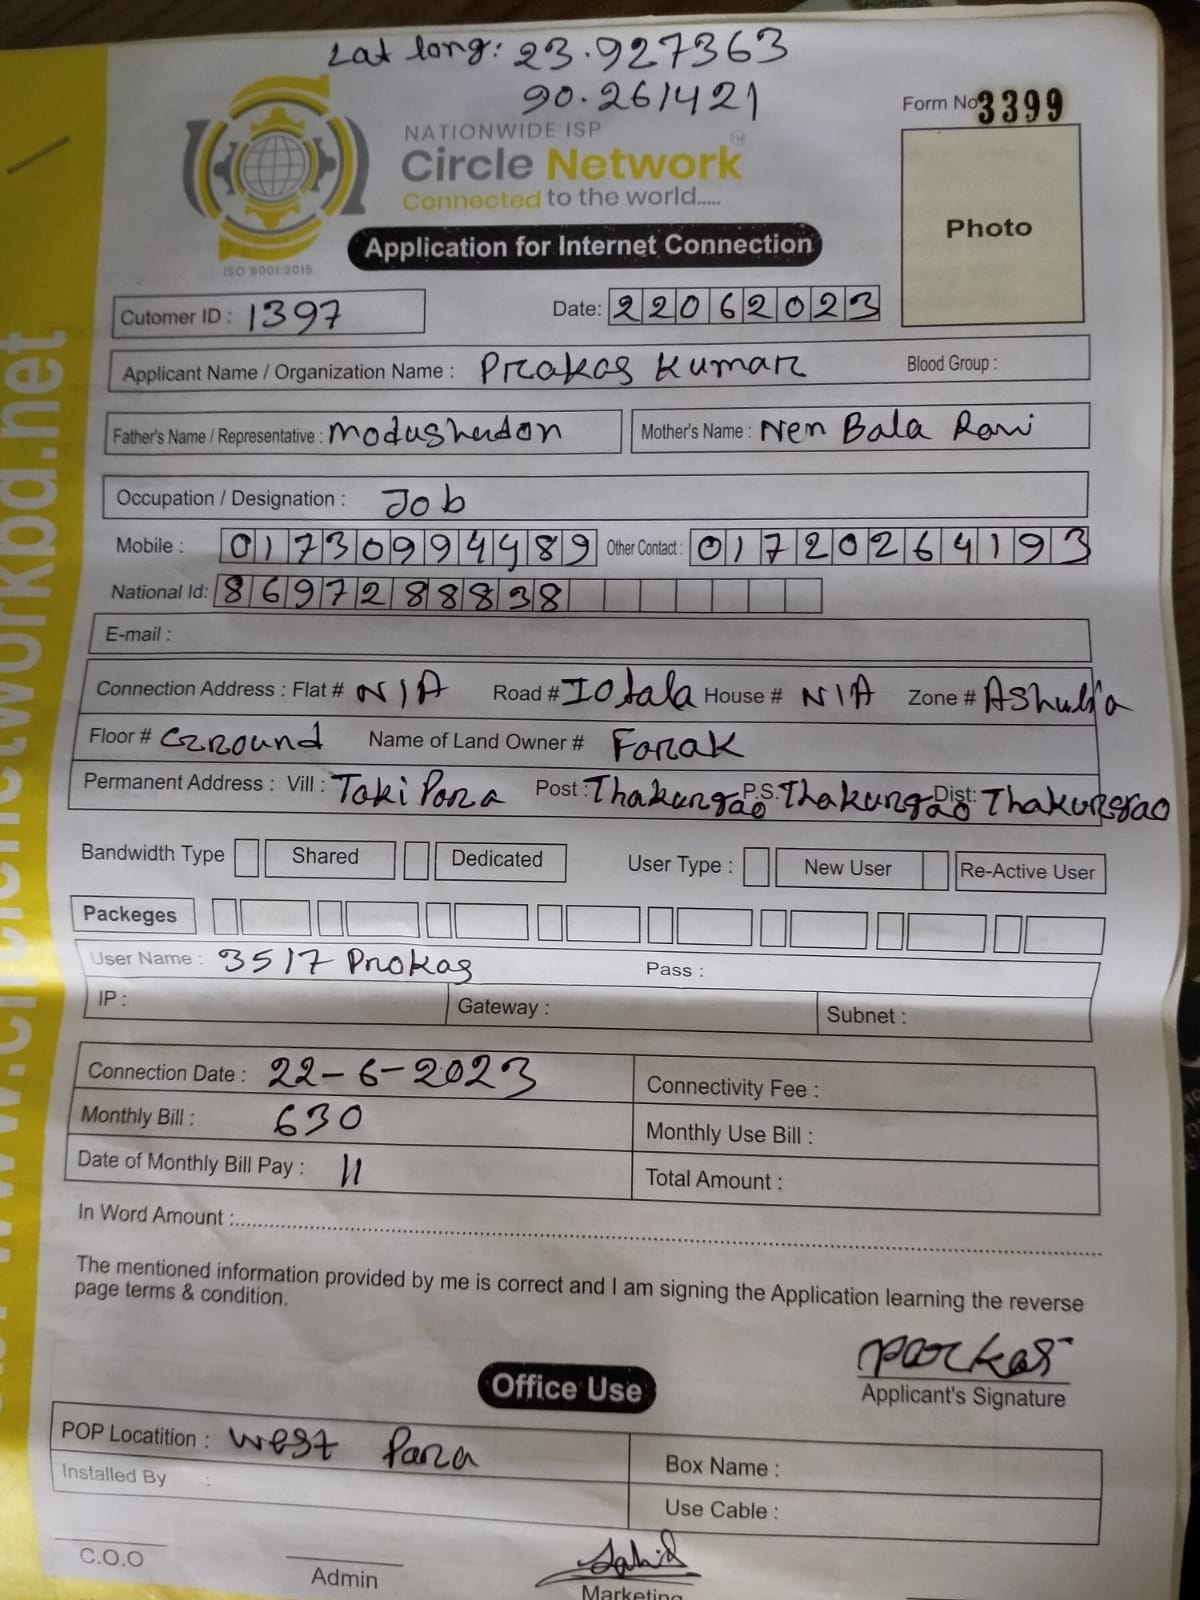 Lat long: 23.927363
90.261421
Form No 3399
NATIONWIDE ISP
Circle Network
TM
Connected to the world.....
ISO 9001:2015
Application for Internet Connection
Photo
Cutomer ID : 1397
Date: 22062023
Applicant Name / Organization Name : Prakas Kumar
Blood Group :
Father's Name / Representative : Modushudon
Mother's Name : Nen Bala Rani
Occupation / Designation : Job
Mobile : 01730994489 Other Contact : 01720264193
National Id: 8697288838
E-mail :
Connection Address : Flat # N/A Road # 10 tala House # N/A Zone # Ashulia
Floor # Ground Name of Land Owner # Farak
Permanent Address : Vill : Toki Para Post : Thakurgao P.S. Thakurgao Dist: Thakurgao
Bandwidth Type Shared Dedicated User Type : New User Re-Active User
Packeges
User Name : 3517 Prokas Pass :
IP : Gateway : Subnet :
Connection Date : 22-6-2023 Connectivity Fee :
Monthly Bill : 630 Monthly Use Bill :
Date of Monthly Bill Pay : 11 Total Amount :
In Word Amount :
The mentioned information provided by me is correct and I am signing the Application learning the reverse
page terms & condition.
Porkas
Applicant's Signature
Office Use
POP Locatition : West Para Box Name :
Installed By : Use Cable :
C.O.O Admin Marketing
www.circlenetworkbd.net